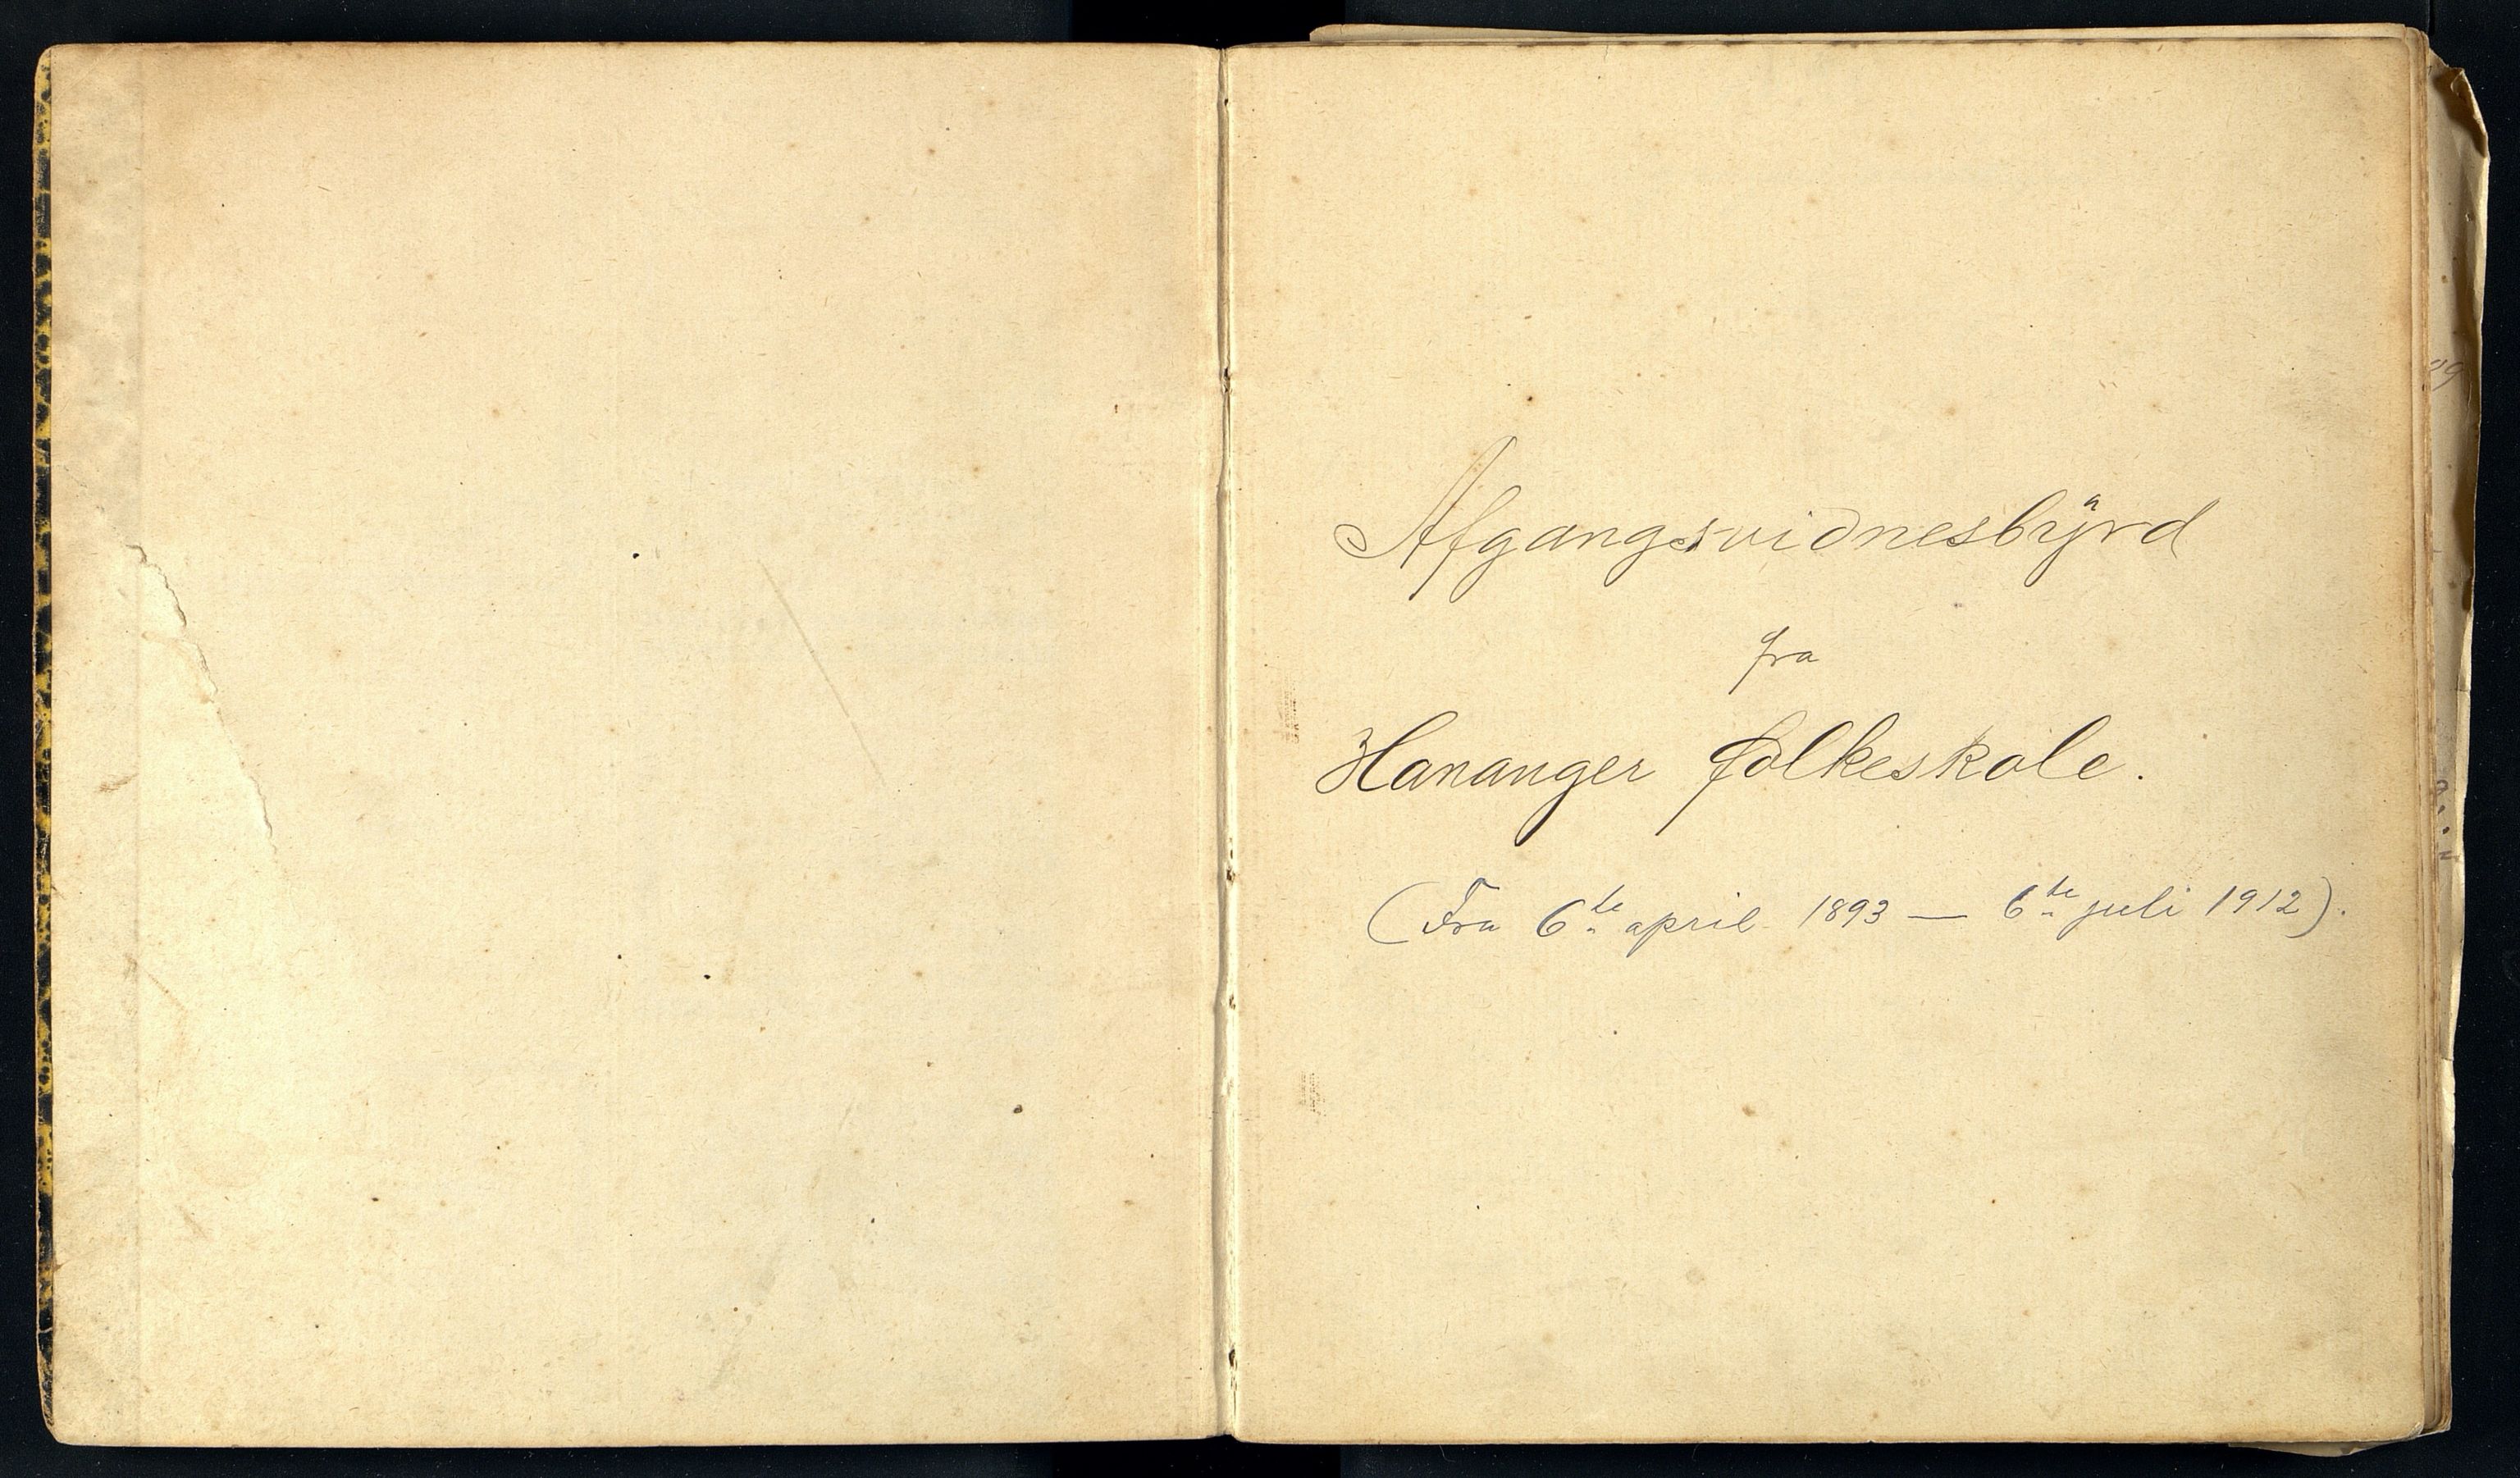 Afgangsvidnesbyrd
fra
Hananger folkeskole.
(Fra 6te april 1893 — 6te juli 1912).